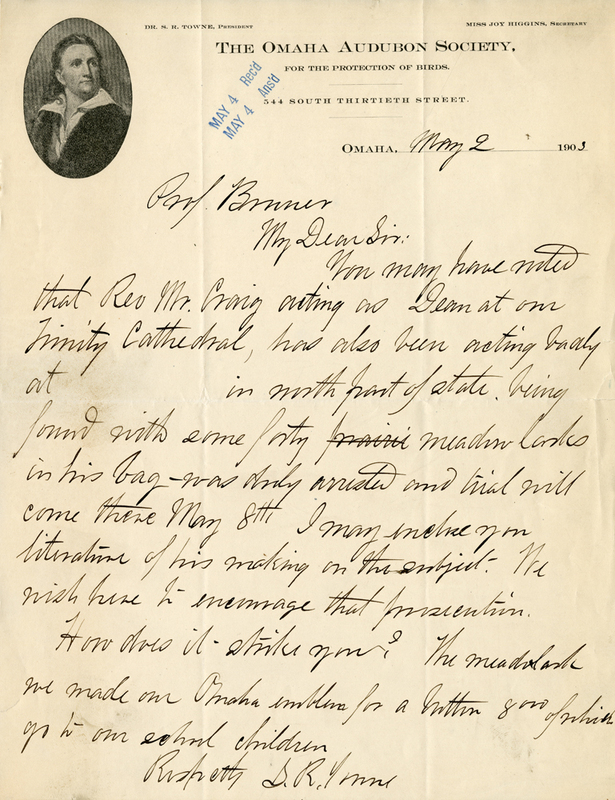 DR. S. R. TOWNE, PRESIDENT
MISS JOY HIGGINS, SECRETARY
THE OMAHA AUDUBON SOCIETY,
FOR THE PROTECTION OF BIRDS.
MAY 4 Rec'd
MAY 4 Ans'd
544 SOUTH THIRTIETH STREET.
OMAHA, May 2 1903
Prof. Bruner
My Dear Sir:
You may have noted
that Rev Mr. Craig acting as Dean at our
Trinity Cathedral, has also been acting badly
at in north part of state. being
found with some forty prairie meadow larks
in his bag - was duly arrested and trial will
come there May 8th I may enclose you
literature of his making on the subject. We
wish here to encourage that prosecution.
How does it strike you? The meadowlark
we made our Omaha emblem for a button 8000 of which
go to our school children
Respectfy S. R. Towne